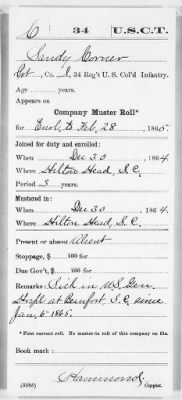 C 34 U.S.C.T.
Sandy Corner
Pvt., Co. I, 34 Reg't U. S. Col'd Infantry.
Age years.
Appears on
Company Muster Roll*
for Enrol. to Feb. 28, 1865.
Joined for duty and enrolled:
When Dec 30, 1864
Where Hilton Head, S.C.
Period 3 years.
Mustered in:
When Dec 30, 1864
Where Hilton Head, S.C.
Present or absent Absent
Stoppage, $ 100 for
Due Gov't, $ 100 for
Remarks: Sick in U.S. Gen.
Hospl at Beaufort, S.C. since
Jan. 6" 1865.
*First current roll. No muster-in roll of this company on file.
Book mark:
Hammond
(358b) Copyist.